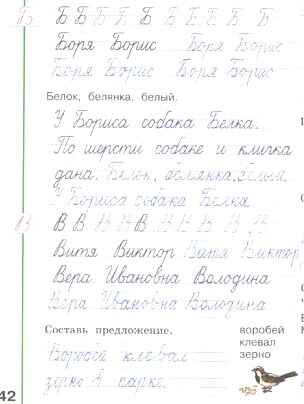 Б Б Б Б Б Б Б Б Б Б
Боря Борис Боря Борис
Боря Борис Боря Борис
Белок, белянка, белый.
У Бориса собака Белка.
По шерсти собаке и кличка
дана. Белок, белянка, белый
У Бориса собака Белка
В В В В В В В В В В
Витя Виктор Витя Виктор
Вера Ивановна Володина
Вера Ивановна Володина
Составь предложение.
воробей
клевал
зерно
Воробей клевал
зерно в парке.
42